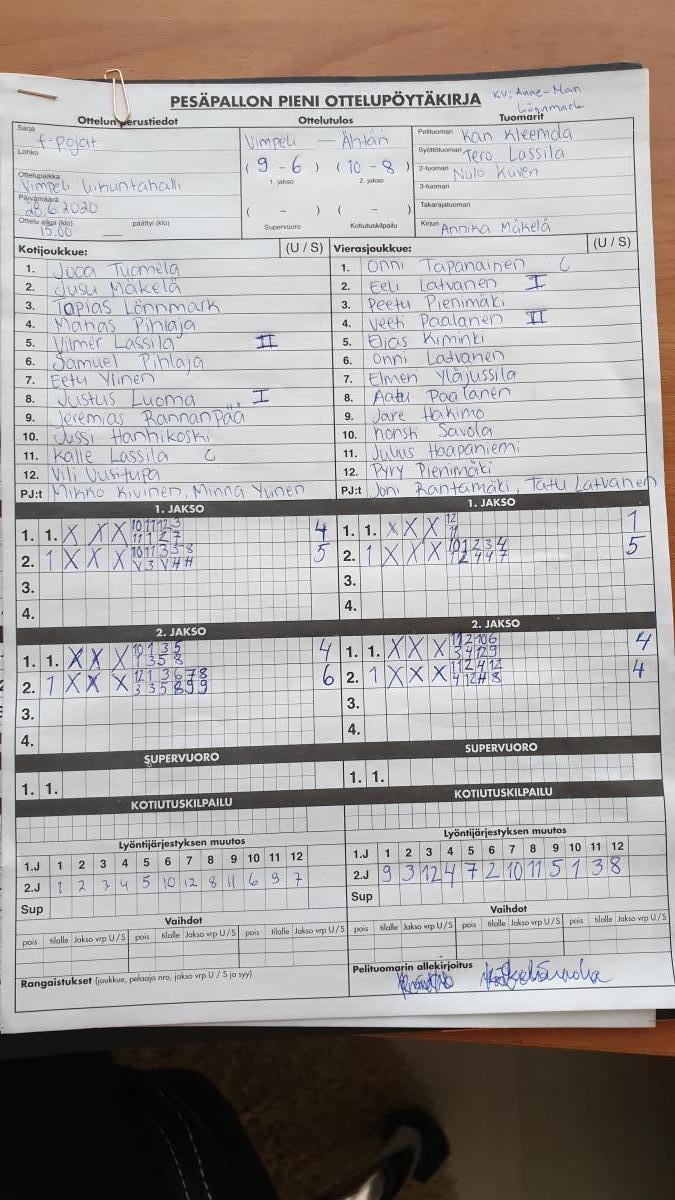 PESÄPALLON PIENI OTTELUPÖYTÄKIRJA
KV: Anne-Mari
Lönnmark
Ottelun perustiedot Ottelutulos Tuomarit
Sarja f-pojat
Lohko
Ottelupaikka Vimpeli liikuntahalli
Päivämäärä 28.6.2020
Ottelu alkoi (klo) 15.00 päättyi (klo) —
Vimpeli — Ähtäri
( 9 - 6 ) ( 10 - 8 )
1. jakso 2. jakso
( - ) ( - )
Supervuoro Kotiutuskilpailu
Pelituomari Kari Kleemola
Syöttötuomari Tero Lassila
2-tuomari
3-tuomari
Takarajatuomari
Kirjuri Annika Mäkelä
Kotijoukkue: (U / S)
1. Tuomela
2. Jusu Mäkelä
3. Tapias Lönnmark
4. Matias Pihlaja
5. Vilmer Lassila II
6. Samuel Pihlaja
7. Eetu Ylinen
8. Justus Luoma I
9. Jeremias Rannanpää
10. Jussi Hanhikoski
11. Kalle Lassila C
12. Vili Uusitupa
PJ:t Mikko Kivinen, Minna Ylinen
Vierasjoukkue: (U / S)
1. Onni Tapanainen C
2. Eeli Latvanen I
3. Peetu Pienimäki
4. Veeti Paalanen II
5. Elias Kiminki
6. Onni Latvanen
7. Elmeri Yläjussila
8. Aatu Paalanen
9. Jare Hakimo
10. Konsta Savola
11. Julius Haapaniemi
12. Pyry Pienimäki
PJ:t Joni Rantamäki, Tatu Latvanen
1. JAKSO
1. 1. X X X 4
2. 1 X X X 5
3.
4.
1. JAKSO
1. 1. X X X 12 11 1
2. 1 X X X 5
3.
4.
2. JAKSO
1. 1. X X X 10 1 3 5 4
1 3 5 8
2. 1 X X X 12 1 3 6 7 8 6
3 3 5 8 9 9
3.
4.
2. JAKSO
1. 1. X X X 11 2 10 6 4
3 4 12 9
2. 1 X X X 11 2 4 12 4
3.
4.
SUPERVUORO
1. 1.
SUPERVUORO
1. 1.
KOTIUTUSKILPAILU
KOTIUTUSKILPAILU
Lyöntijärjestyksen muutos
1.J 1 2 3 4 5 6 7 8 9 10 11 12
2.J 1 2 3 4 5 10 12 8 11 6 9 7
Sup
Lyöntijärjestyksen muutos
1.J 1 2 3 4 5 6 7 8 9 10 11 12
2.J 9 3 12 4 7 2 10 11 5 1 3 8
Sup
Vaihdot
pois tilalle Jakso vrp U / S pois tilalle Jakso vrp U / S pois tilalle Jakso vrp U / S
Vaihdot
pois tilalle Jakso vrp U / S pois tilalle Jakso vrp U / S pois tilalle Jakso vrp U / S
Rangaistukset (joukkue, pelaaja nro, jakso vrp U / S ja syy)
Pelituomarin allekirjoitus